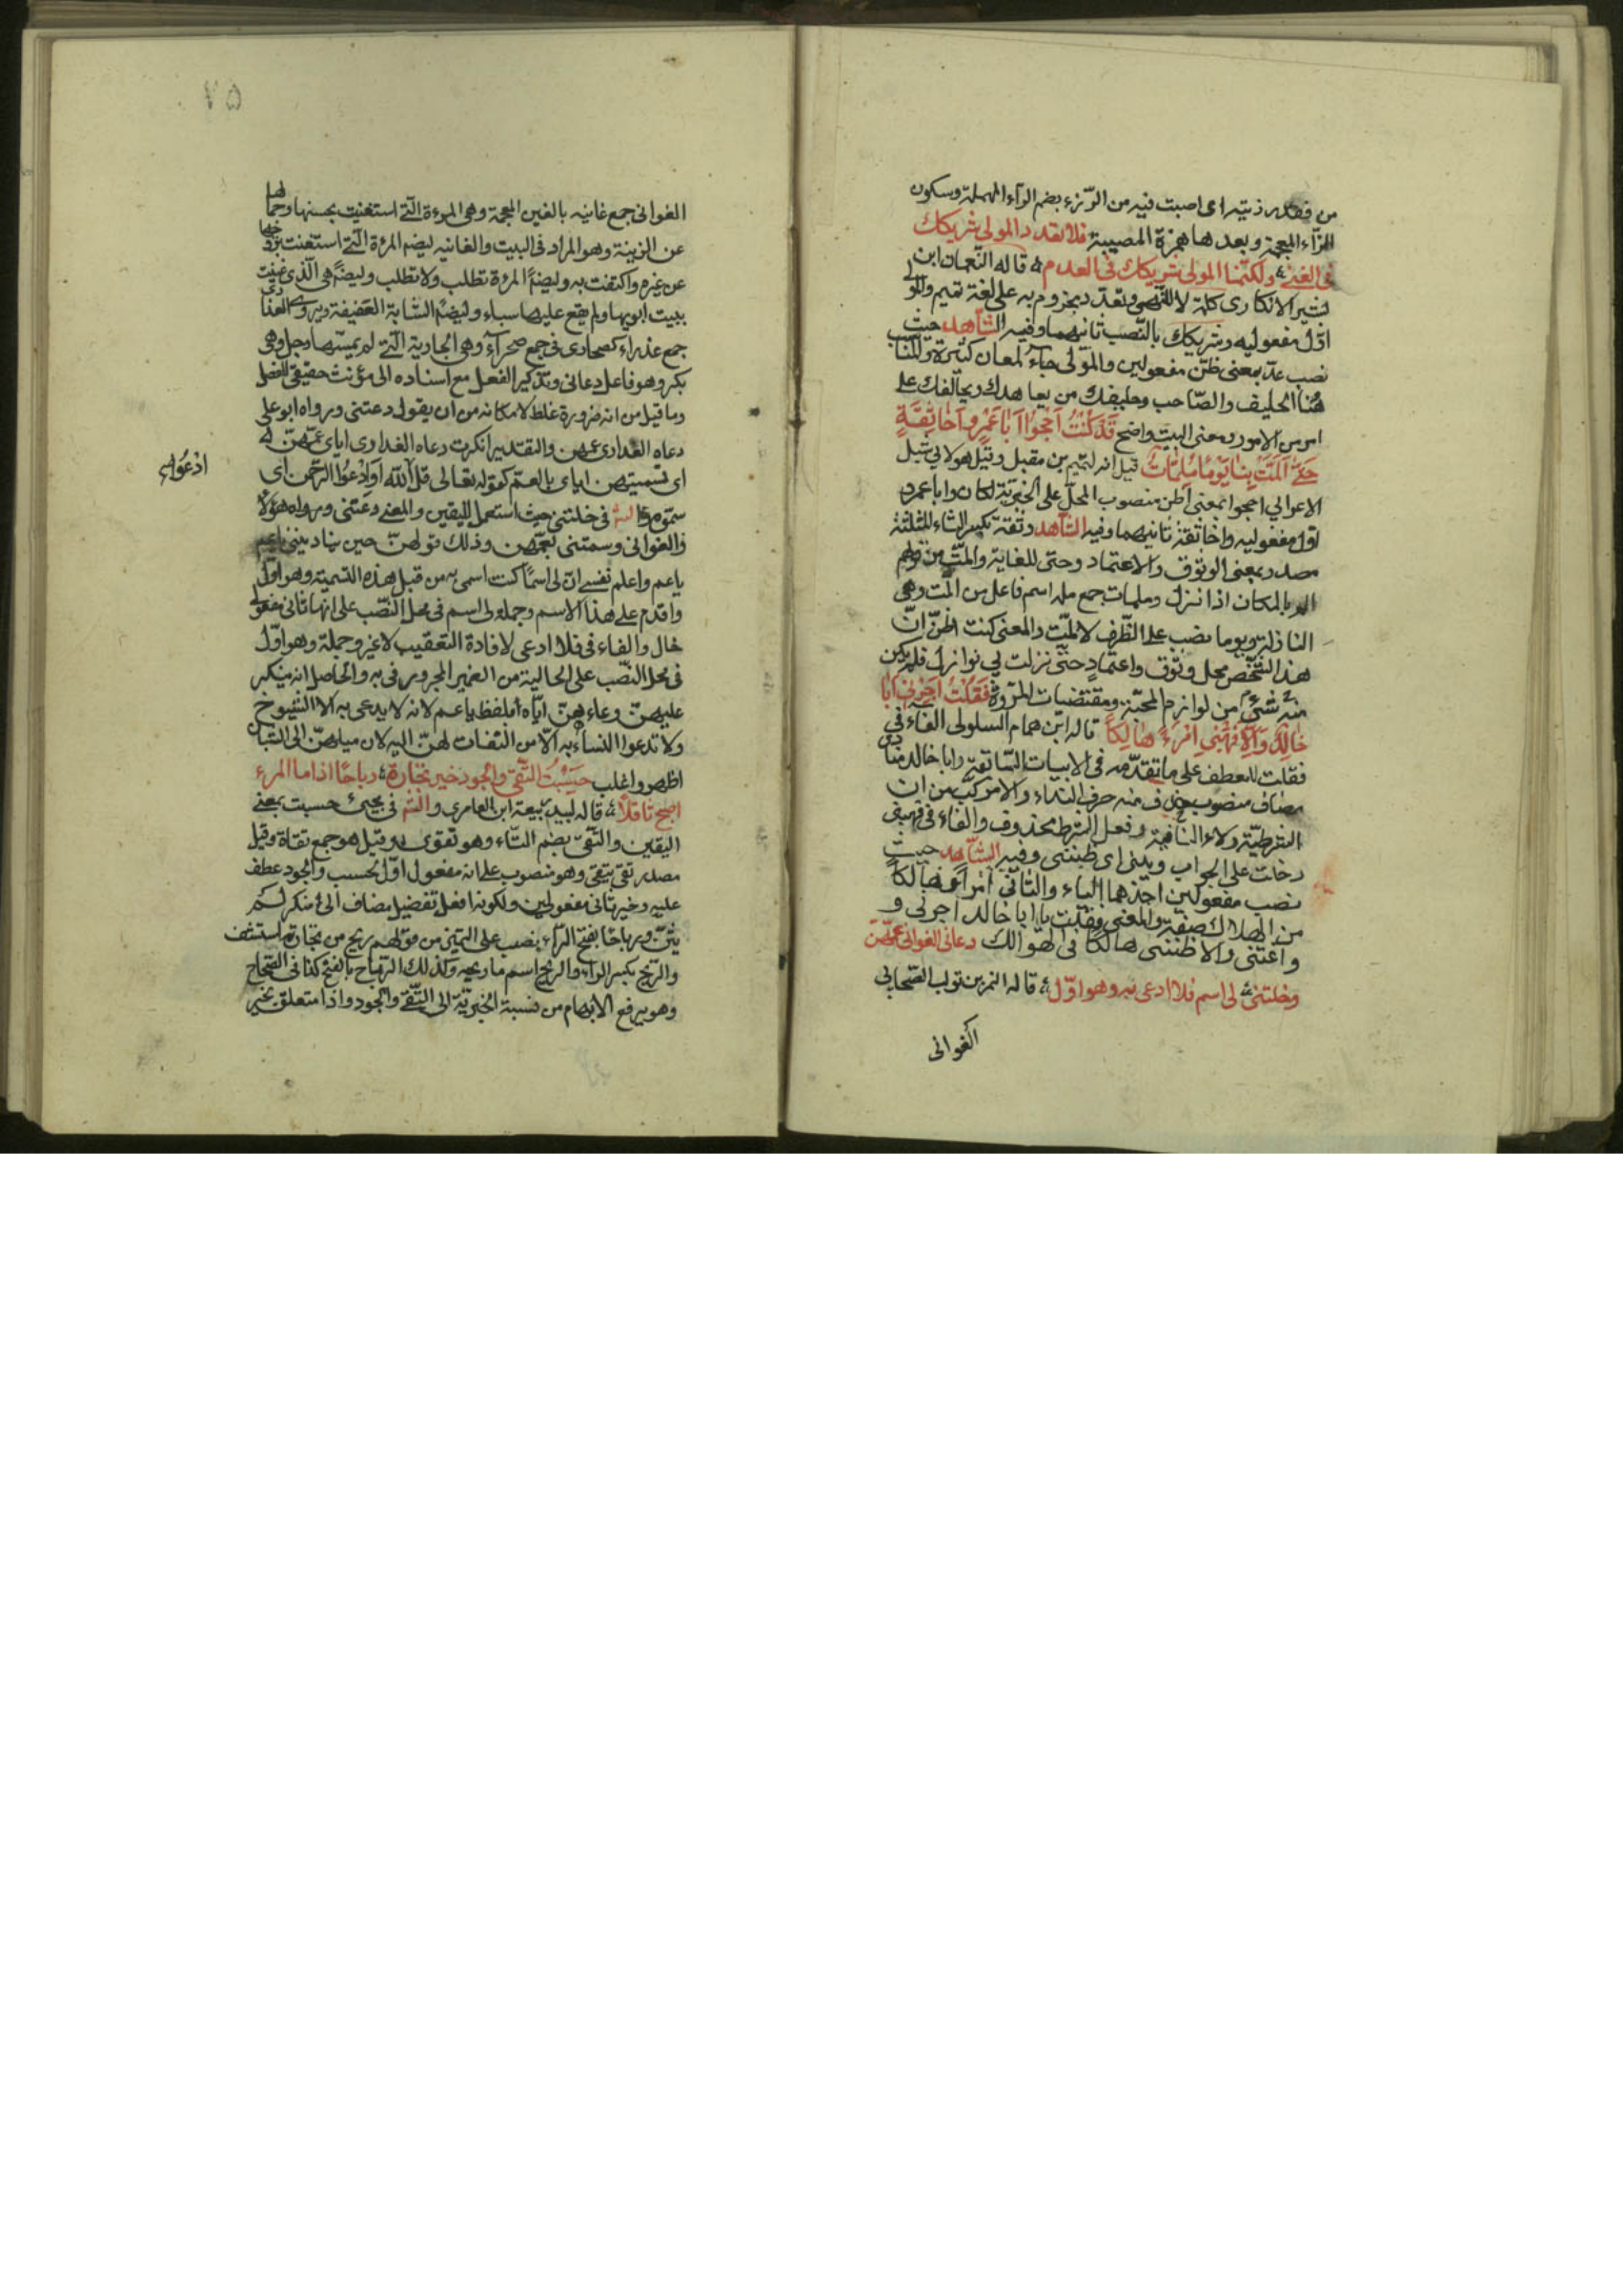 من فقده رزئته اى اصبت فيه من الرّزء بضم الراء المهملة وسكون
الزّاء المعجمة وبعدها همزة المصيبة فلا تعدد المولى شريكك
فى الغنى ولكنّما المولى شريكك فى العدم قاله النّعمان ابن
بشير الانكارى كلمة لا للنّهى وتعدد مجزوم به على لغة تميم والمولى
اوّل مفعوليه وشريكك بالنّصب ثانيهما وفيه الشّاهد حيث
نصب عدّ بمعنى ظنّ مفعولين والمولى جاء لمعان كثيرة والمناسب
هنا الحليف والصّاحب وحليفك من يعاهدك ويحالفك على
امر من الامور ومعنى البيت واضح قَدْ كُنْتُ اَحْجُوا اَبا عَمْرٍو اَخا ثِقَةٍ
حَتّى اَلَمَّتْ بِنا يَوْمًا مُلِمّاتُ قيل انه لتميم بن مقبل وقيل هو لابى شبل
الاعرابي احجوا بمعنى اظن منصوب المحلّ على الخبريّة لكان وابا عمرو
اوّل مفعوليه واخا ثقة ثانيهما وفيه الشّاهد وثقة بكسر الثاء المثلثة
مصدر بمعنى الوثوق والاعتماد وحتى للغاية والمّت من قولهم
الم بالمكان اذا نزل وملمات جمع ملمة اسم فاعل من المت وهى
النازلة ويوما نصب على الظّرف لالمّت والمعنى كنت اظنّ انّ
هذا الشّخص محل وثوق واعتماد حتى نزلت بي نوازل فلم يكن
منه شئ من لوازم المحبّة ومقتضيات المروّة فَقُلْتُ اَجِرْنى اَبا
خالِدٍ وَاِلّا فَهَبْنى امْرَءً هالِكًا قاله ابن همام السلولى الفاء في
فقلت للعطف على ما تقدّمه فى الابيات السّابقة وابا خالد منادى
مضاف منصوب حذف منه حرف النداء والامر كّب من ان
الشرطيّة ولاء النافية وفعل الشرط محذوف والفاء فى فهبنى
دخلت على الجواب وهبنى اى ظننى وفيه الشّاهد حيث
نصب مفعولين احدهما الياء والثانى امرأ وهالكًا
من الهلاك صفته والمعنى فقلت يا ابا خالد اجرنى و
واغثنى والا ظننى هالكًا فى الهوالك دعانى الغوانى عمّهنّ
وخلتنى لى اسم فلا ادعى به وهو اوّل قاله النمر بن تولب الصّحابي
الغوانى
الغوانى جمع غانيه بالغين المعجمة وهى المرءة الّتى استغنيت بحسنها وجمالها
عن الزينة وهو المراد فى البيت والغانيه ايضا المرءة الّتى استغنت بزوجها
عن غيره واكتفت به وايضاً المرءة تطلب ولا تطلب وايضًا هى الّذى غنيت
ببيت ابويها ولم يقع عليها سباء وايضًا الشابة العفيفة ويروى العذارى
جمع عذراء كصحارى فى جمع صحرآء وهى الجارية الّتى لم يمسّها رجل وهى
بكر وهو فاعل دعانى وتذكير الفعل مع اسناده الى مؤنث حقيقى للفصل
وما قيل من انه ضرورة غلط لامكانه من ان يقول دعتنى ورواه ابو على
دعاه العذارى عمهن والتقدير انكرت دعاه العذارى اياى عمّهنّ
اى تسميتهن اياى بالعمّ كقوله تعالى قل ادعُوا اللّه اَوِ ادْعُوا الرّحمن اى
سمّوه فى خلتنى حيث استعمل لليقين والمعنى دعتنى ورواه هؤلاء
الغوانى وسمتنى بعمّهن وذلك قولهنّ حين يناديننى يا عم
يا عم واعلم نفسى انّ لى اسمًا كنت اسمى به من قبل هذه التسمية وهو اوّل
واقدم على هذا الاسم وجملة لى اسم فى محل النّصب على انها ثانى مفعولى
خال والفاء فى فلا ادعى لافادة التعقيب لا غير وجملة وهو اوّل
فى محل النّصب على الحالية من الضمير المجرور فى به والحاصل انه ينكر
عليهنّ دعاءهنّ ايّاه بلفظ يا عم لانه لا يدعى به الا الشيوخ
ولا تدعوا النساء به الا من التفات لهنّ اليه لان ميلهنّ الى الشباب
اظهر واغلب حَسِبْتُ التّقى والجود خير تجارة رباحًا اذا ما المرء
اصبح ثاقلًا قاله لبيد بن ربيعة ابن العامرى والشّم فى مجيئ حسبت بمعنى
اليقين والتّقى بضم التّاء وهو تقوى وقيل هو جمع تقاة وقيل
مصدر تقى يتقى وهو منصوب على انه مفعول اوّل لحسب والجود عطف
عليه وخير ثانى مفعولين ولكونه افعل تفضيل مضاف الى منكر لم
يثنّ ورباحًا بفتح الرّاء نصب على التميز من قولهم ربح من تجارته استشف
والرّبح بكسر الراء والربح اسم ما ربحه وكذلك الرّباح بالفتح كذا فى الصّحاح
وهو يرفع الابهام من نسبة الخبريّة الى التّقى والجود واذا متعلق بخير
ادْعُوا
٧٥